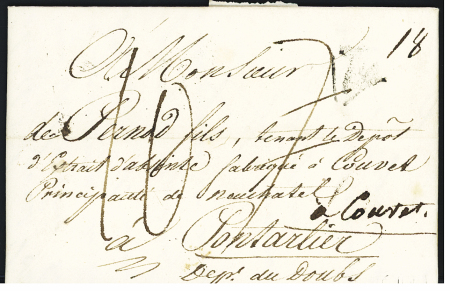 18
A Monsieur
de Pernod fils, tenant le Depôt
d'Extrait d'absinthe fabriqué à Couvet
Principauté de neuchatel
à Couvet.
à Pontarlier
Dep.t du Doubs